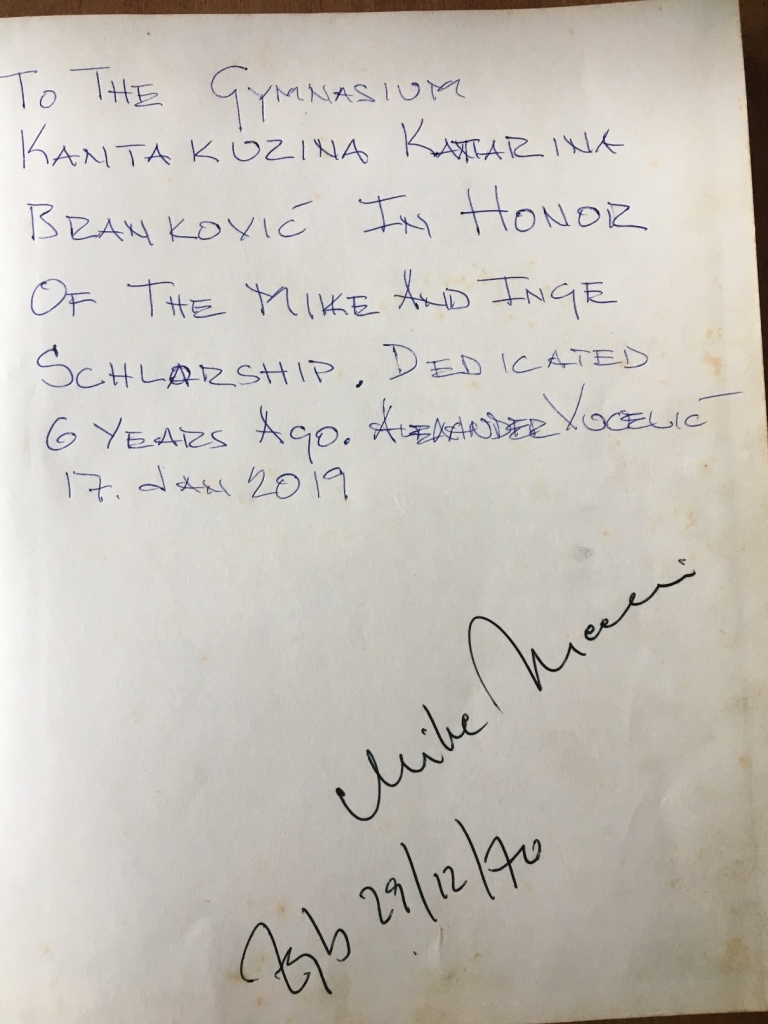 TO THE GYMNASIUM
KANTAKUZINA KATARINA
BRANKOVIĆ IN HONOR
OF THE MIKE AND INGE
SCHLARSHIP. DEDICATED
6 YEARS AGO. ALEXANDER VUCELIĆ
17. JAN 2019
Mike
Zgb 29/12/70